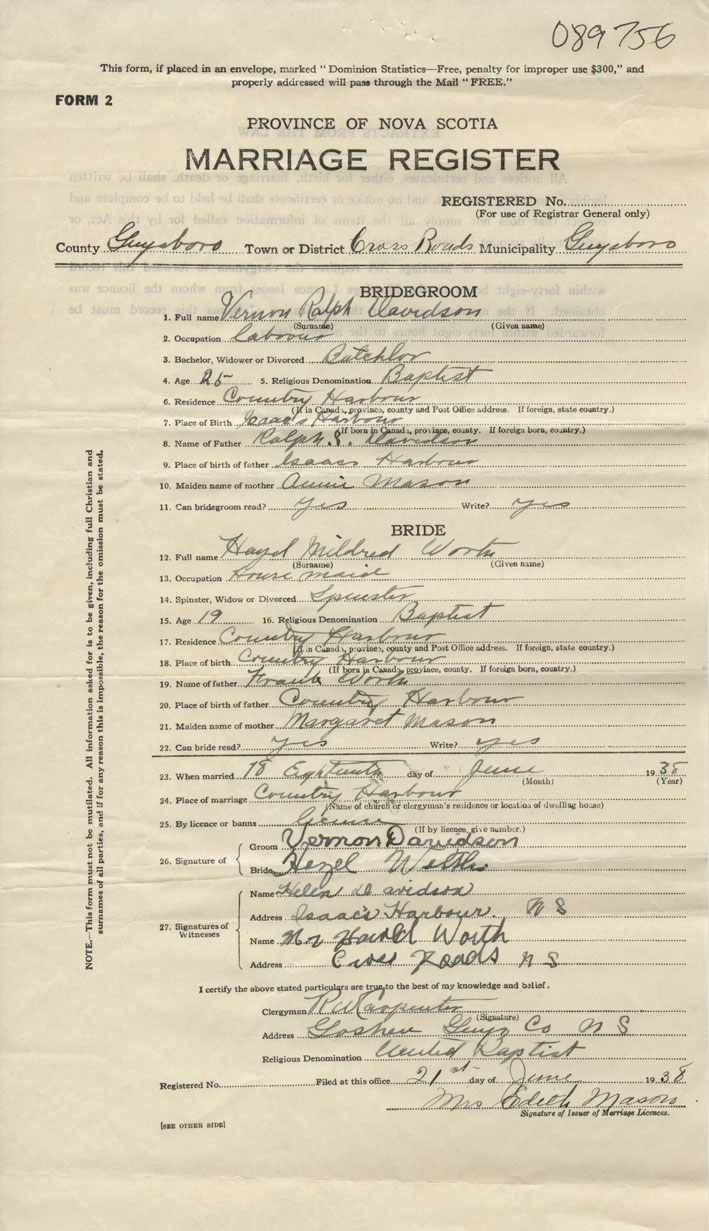 089756
This form, if placed in an envelope, marked “ Dominion Statistics—Free, penalty for improper use $300,” and
properly addressed will pass through the Mail “ FREE.”
FORM 2
PROVINCE OF NOVA SCOTIA
MARRIAGE REGISTER
REGISTERED No.
(For use of Registrar General only)
County Guysboro Town or District Cross Roads Municipality Guysboro
BRIDEGROOM
1. Full name Vernon Ralph Davidson
(Surname) (Given name)
2. Occupation Labourer
3. Bachelor, Widower or Divorced Batchlor
4. Age 25 5. Religious Denomination Baptist
6. Residence Country Harbour
(If in Canada, province, county and Post Office address. If foreign, state country.)
7. Place of Birth Isaac's Harbour
(If born in Canada, province, county. If foreign born, country.)
8. Name of Father Ralph S. Davidson
9. Place of birth of father Isaacs Harbour
10. Maiden name of mother Annie Mason
11. Can bridegroom read? yes Write? yes
BRIDE
12. Full name Hazel Mildred Worth
(Surname) (Given name)
13. Occupation House maid
14. Spinster, Widow or Divorced Spinster
15. Age 19 16. Religious Denomination Baptist
17. Residence Country Harbour
(If in Canada, province, county and Post Office address. If foreign, state country.)
18. Place of birth Country Harbour
(If born in Canada, province, county. If foreign born, country.)
19. Name of father Frank Worth
20. Place of birth of father Country Harbour
21. Maiden name of mother Margaret Mason
22. Can bride read? yes Write? yes
23. When married 18 day of June 1938
(Month) (Year)
24. Place of marriage Country Harbour
(Name of church or clergyman's residence or location of dwelling house)
25. By licence or banns
(If by licence, give number.)
26. Signature of
Groom Vernon Davidson
Bride Hazel
27. Signatures of Witnesses
Name Helen Davidson
Address Isaac's Harbour. N S
Name Mr Harold Worth
Address Cross Roads N S
I certify the above stated particulars are true to the best of my knowledge and belief.
Clergyman R W Carpenter
(Signature)
Address Goshen Guys Co N S
Religious Denomination United Baptist
Registered No. Filed at this office 21st day of June 1938
Mrs Edith Mason
Signature of Issuer of Marriage Licences.
[SEE OTHER SIDE]
NOTE.—This form must not be mutilated. All information asked for is to be given, including full Christian and
surnames of all parties, and if for any reason this is impossible, the reason for the omission must be stated.